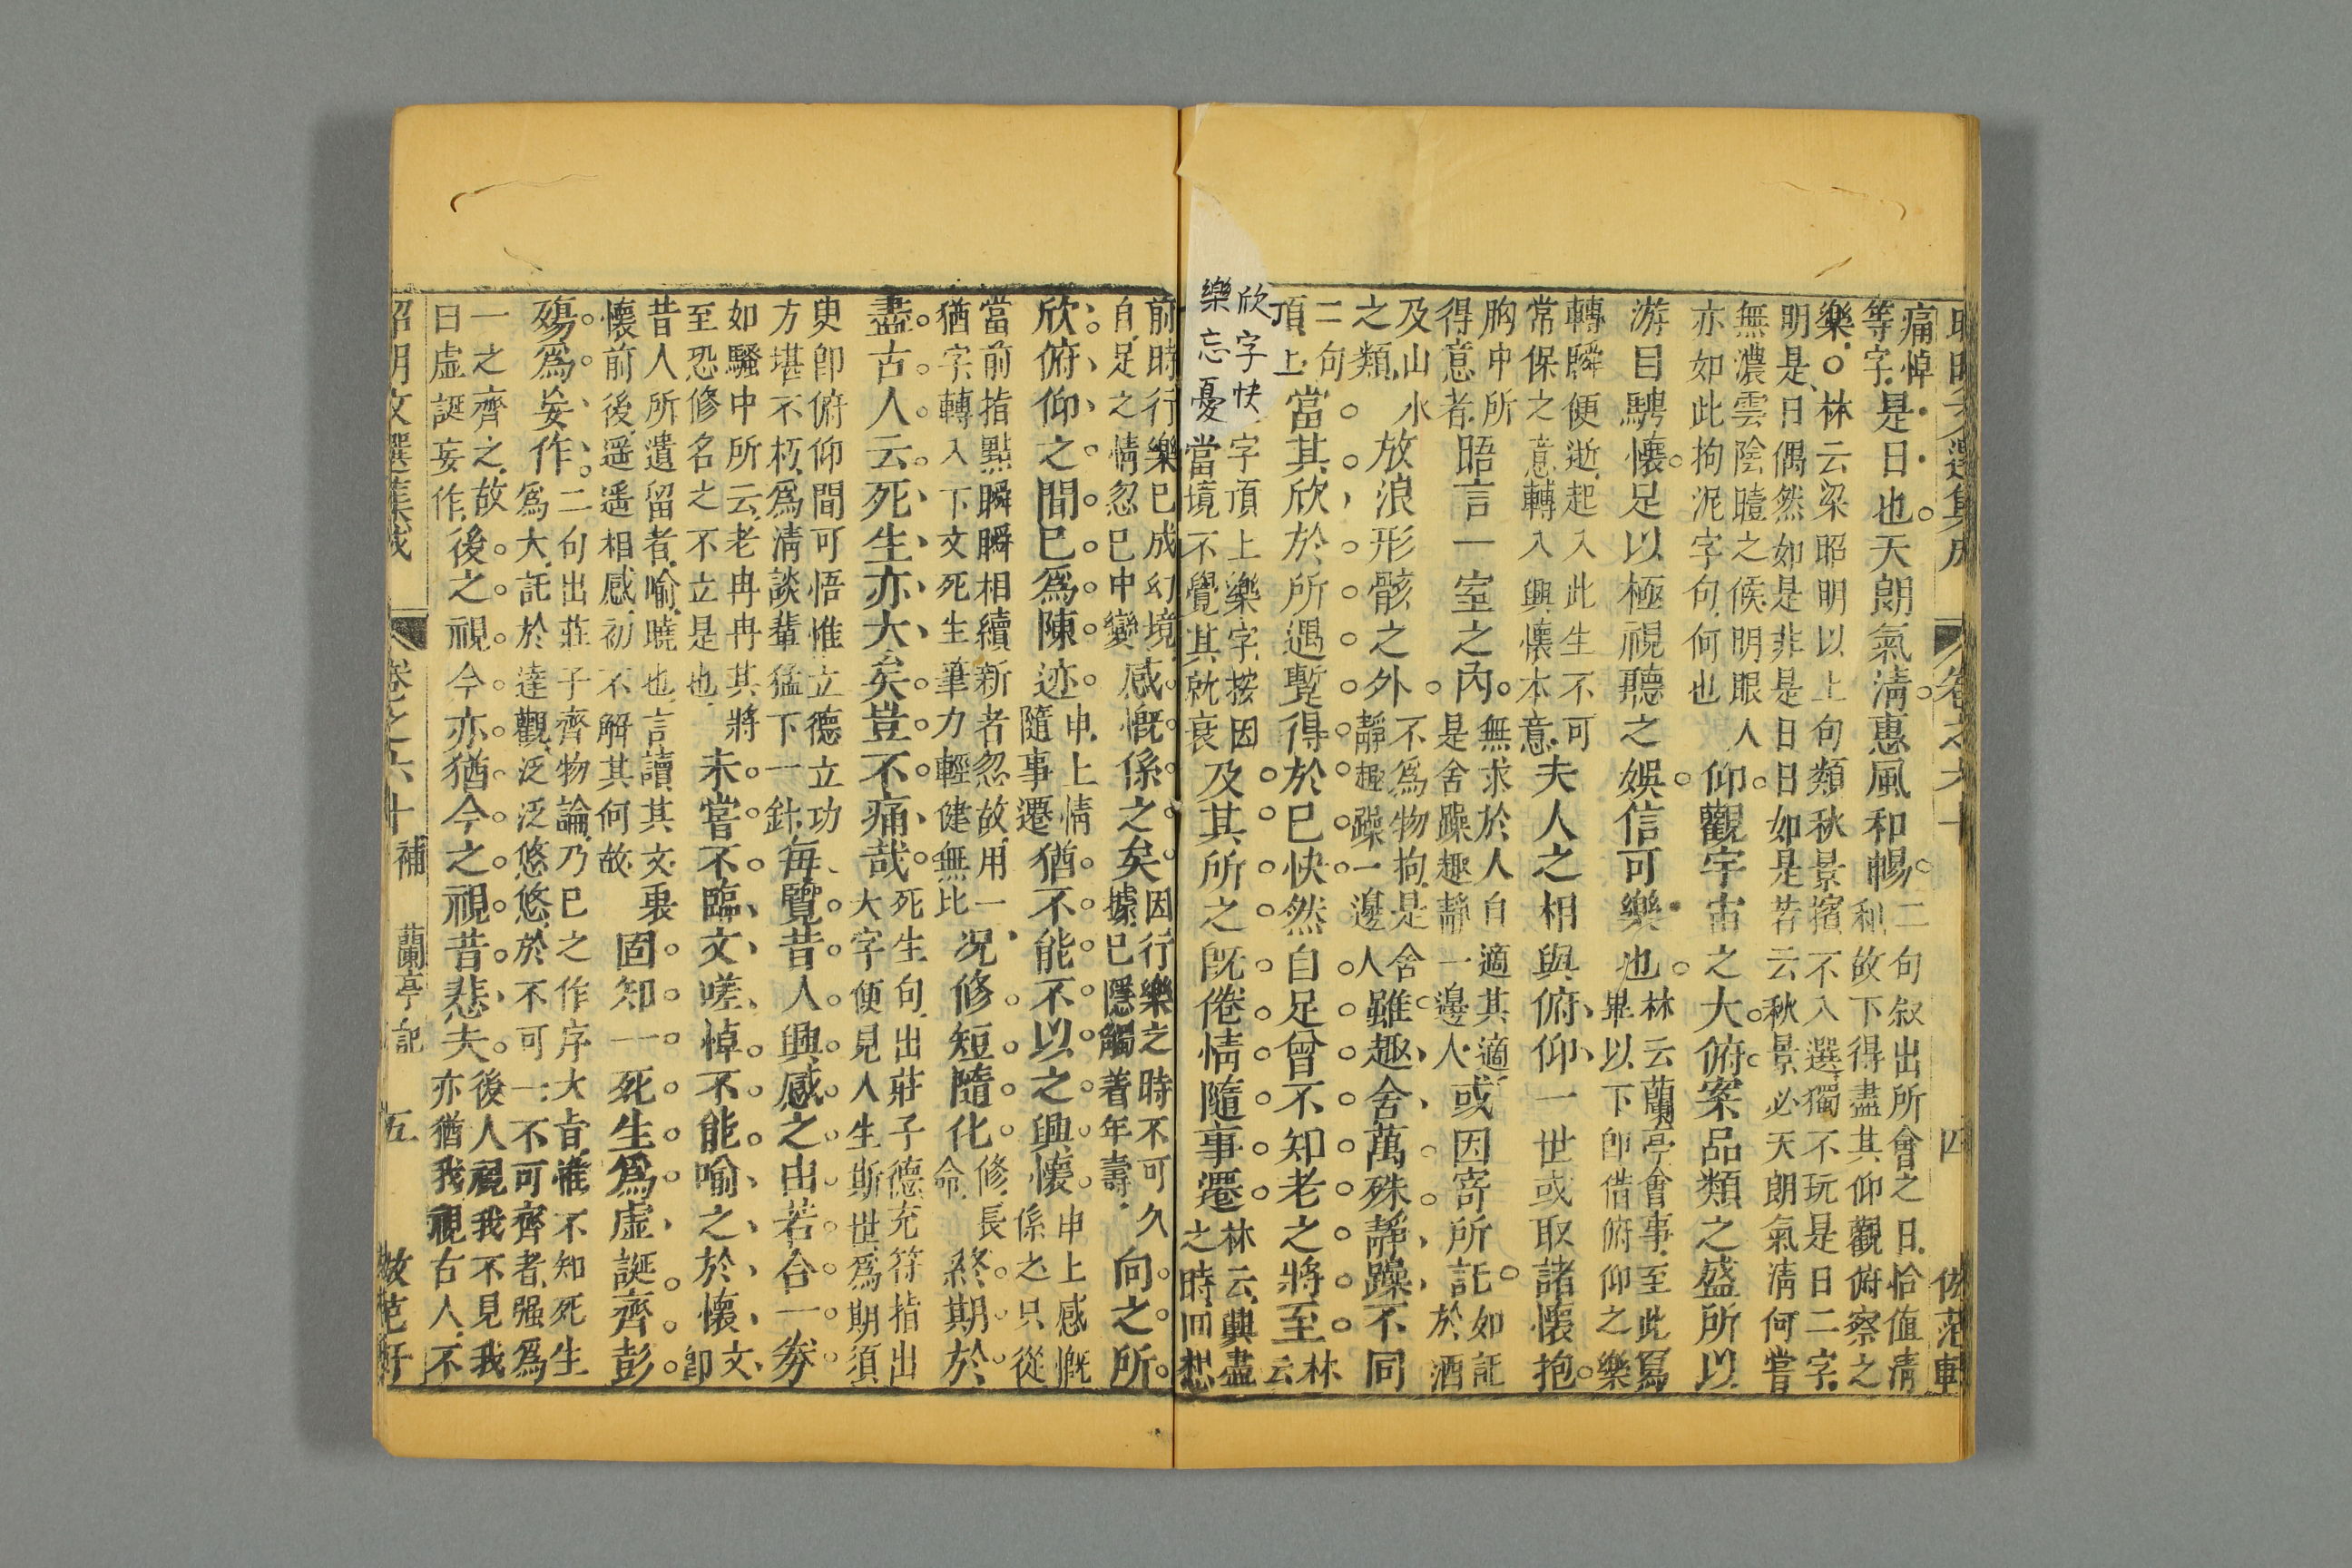 昭明文選集成 卷之六十 四 倣范軒
痛悼等字是日也天朗氣淸惠風和暢二句叙出所會之日恰值淸和故下得盡其仰觀俯察之
樂○林云梁昭明以上句類秋景擯不入選獨不玩是日二字明是日偶然如是非是日日如是若云秋景必天朗氣淸何嘗
無濃雲陰曀之候明眼人亦如此拘泥字句何也仰觀宇宙之大俯案品類之盛所以
游目騁懷足以極視聽之娛信可樂也林云蘭亭會事至此寫畢以下卽借俯仰之樂
轉瞬便逝起入此生不可常保之意轉入興懷本意夫人之相與俯仰一世或取諸懷抱
胸中所得意者晤言一室之內無求於人自適其適是舍躁趣靜一邊人或因寄所託如託於酒
及山水之類放浪形骸之外不爲物拘是舍靜趣躁一邊人雖趣舍萬殊靜躁不同
二句頂上當其欣於所遇暫得於已快然自足曾不知老之將至林云
欣字快字頂上樂字按因樂忘憂當境不覺其就衰及其所之旣倦情隨事遷林云興盡之時回想
前時行樂已成幻境自足之情忽已中變感慨係之矣因行樂之時不可久據已隱觸着年壽向之所
欣俯仰之間已爲陳迹申上情隨事遷猶不能不以之興懷申上感慨係之只從
當前指點瞬瞬相續新者忽故用一猶字轉入下文死生筆力輕健無比况修短隨化修長命終期於
盡古人云死生亦大矣豈不痛哉死生句出莊子德充符指出大字便見人生斯世爲期須
臾卽俯仰間可悟惟立德立功方堪不朽爲淸談輩猛下一針每覽昔人興感之由若合一劵
如騷中所云老冉冉其將至恐修名之不立是也未嘗不臨文嗟悼不能喻之於懷文卽
昔人所遺留者喻曉也言讀其文裏懷前後遥遥相感初不解其何故固知一死生爲虛誕齊彭
殤爲妄作二句出莊子齊物論乃已之作序大旨惟不知死生爲大託於達觀泛泛悠悠於不可一不可齊者强爲
一之齊之故曰虛誕妄作後之視今亦猶今之視昔悲夫後人視我不見我亦猶我視右人不
昭明文選集成 卷之六十補 蘭亭記 五 倣范軒